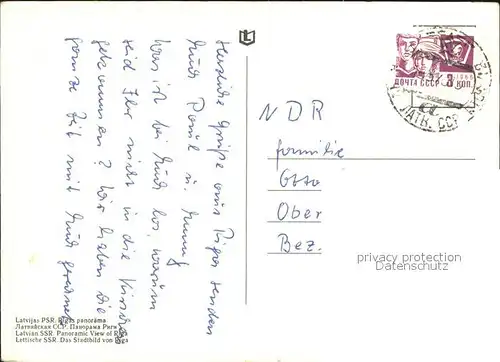 Herzliche Grüße aus Riga senden
Euch Paul u. 
Was ist bei Euch los, warum
seid Ihr nicht in die
gekommen? Wir haben die
ganze Zeit mit Euch gerechnet
NDR
Familie
Otto
Ober
Bez.
1966
ПОЧТА СССР 3 КОП.
ЛАТВ. ССР
privacy protection
Datenschutz
Latvijas PSR. Rīgas panorāma
Латвийская ССР. Панорама Риги
Latvian SSR. Panoramic View of
Lettische SSR. Das Stadtbild von Riga